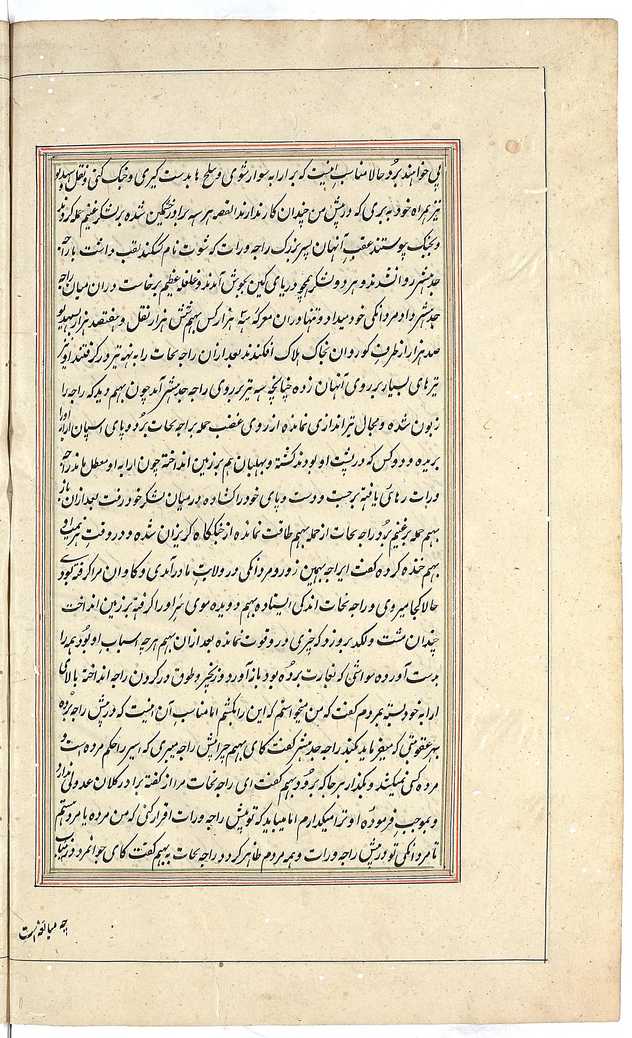 پی خواهند برد حالا مناسب اینست که بر ارابه سوار شوی و سلح ها بدست گیری و جنک کنی و نقل و سهدیو
نیز همراه خود ببری که در پیش من چندان کار ندارند القصه هر سه برادر خشمگین شده بر لشکر غنیم حمله کردند
و بجنک پیوستند عقب آنهان پسر بزرک راجه ورات که شوت نام سکند لقب داشت با راجه
جدهشتر روانه شدند و هر دو لشکر همچو دریای کین بجوش آمدند و غلغله عظیم برخاست در ان میان راجه
جدهشتر داد مردانکی خود میداد و تنها در ان معرکه سه هزار کس بهیم شش هزار نقل و هفتصد هزار سهدیو
صد هزار از طرف کوروان بخاک هلاک افکندند بعد ازان راجه بحات را به نهه تیر در کرفتند او نیز
تیرهای بسیار بر روی آنهان زده چنانچه سه تیر بر روی راجه جدهشتر آمد چون بهیم دید که راجه را
زبون شده و مجال تیر اندازی نمانده از روی غضب حمله بر راجه بحات برد و پای اسپان ارابه اورا
بریده و دو کس که در پشت او بودند کشته و بهلبان هم بر زمین انداخته چون ارابه او معطل ماند راجه
ورات رهائی یافته برجست و دست و پای خود را کشاده در میان لشکر خود رفت بعد ازان باز
بهیم حمله بر غنیم برد راجه بحات از حمله بهیم طاقت نمانده از جنکاه کریزان شده و در وقت هزیمت او
بهیم خنده کرده کفت ای راجه بهمین زور و مردانکی در ولایت ما در آمدی و کاوان مرا کرفته بودی
حالا کجا میروی و راجه بحات اندکی ایستاده بهیم دویده موی سر اورا کرفته بر زمین انداخت
چندان مشت و لکد بر وزد که چیزی در و قوت نمانده بعد ازان بهیم هرچه اسباب او بود همه را
بدست آورده مواشی که بغارت برده بود باز آورد و زنجیر و طوق در کردن راجه انداخته بالای
ارابه خود بسته بمردم کفت که من میخواستم که این را بکشم اما مناسب آن اینست که در پیش راجه برده
بهر عقوبتی که میفرماید کنند راجه جدهشتر کفت کای بهیم چرا پیش راجه میبری که اسیر را حکم مرده است و
مرده کسی نمیکشد و بکذار هر جا که برود بهیم کفت ای راجه بحات مرا از کفته برادر کلان عدولی ندارد
و بموجب فرموده او ترا میکذارم اما میباید که تو پیش راجه ورات اقرار کنی که من مرده یا مردستم
تا مردانکی تو در پیش راجه ورات و همه مردم ظاهر کردد راجه بحات به بهیم کفت کای جوانمرد درینباب
چه مبالغه است